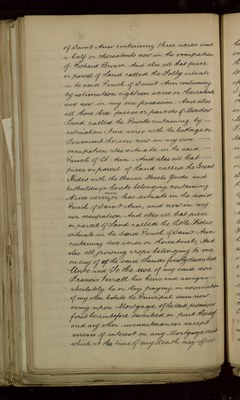 of Saint Ann containing three acres and
a half or thereabouts now in the occupation
of Richard Brown And also all that piece
or parcel of land called the Folly situate
in the said Parish of Saint Ann containing
by estimation eighteen acres or thereabouts
and now in my own possession And also
all those three pieces or parcels of Meadow
Land called the Ponds containing by
estimation Nine acres with the Cottage or
Tenement thereon now in my own
occupation also situate in the said
Parish of St. Ann And also all that
piece or parcel of Land called the Great
Nides with the House Stable Yards and
Outbuildings thereto belonging containing
Nine acres or less situate in the said
Parish of Saint Ann, and now in my
own occupation And also all that piece
or parcel of Land called the Little Nides
situate in the said Parish of Saint Ann
containing two acres or thereabouts, And
also all growing crops belonging to me
on any of the said Lands firstly devised
Unto and To the use of my said son
Francis his heirs and assigns
absolutely he or they paying in exoneration
of my other estate the Principal sum now
owing upon Mortgage of the said premises
first hereinbefore devised or part thereof
and any other incumbrances except
arrears of interest on any Mortgage debt
which at the time of my death may affect